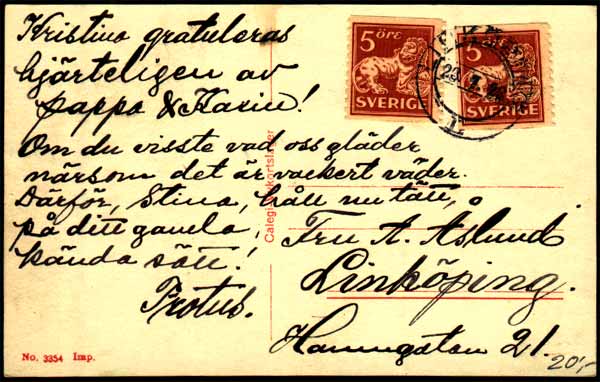 Kristina gratuleras
hjärteligen av
pappa & Karin!
Om du visste vad oss gläder
närsom det är vackert väder.
Därför, Stina, håll nu tätt,
på ditt gamla,
kända sätt!
Protus.
5 ÖRE
SVERIGE
5
SVERIGE
Fru A. Åslund
Linköping.
Hamngatan 21.
No. 3354 Imp.
20:-